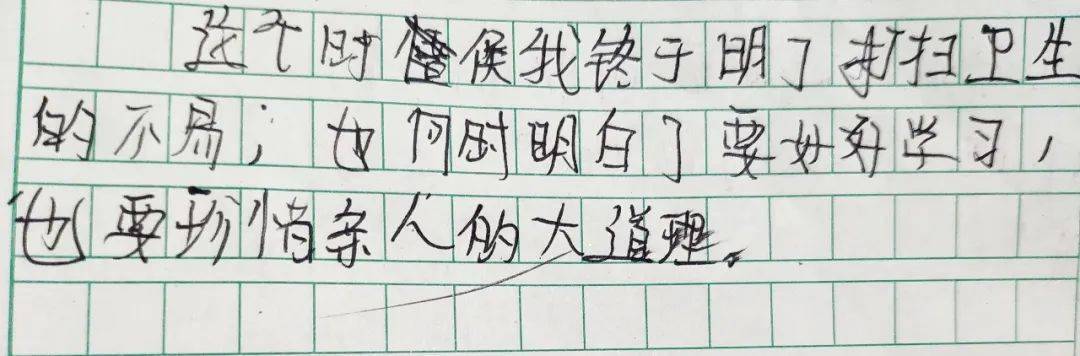 这个时候我终于明了打扫卫生
的不易；也同时明白了要好好学习，
也要珍惜亲人的大道理。